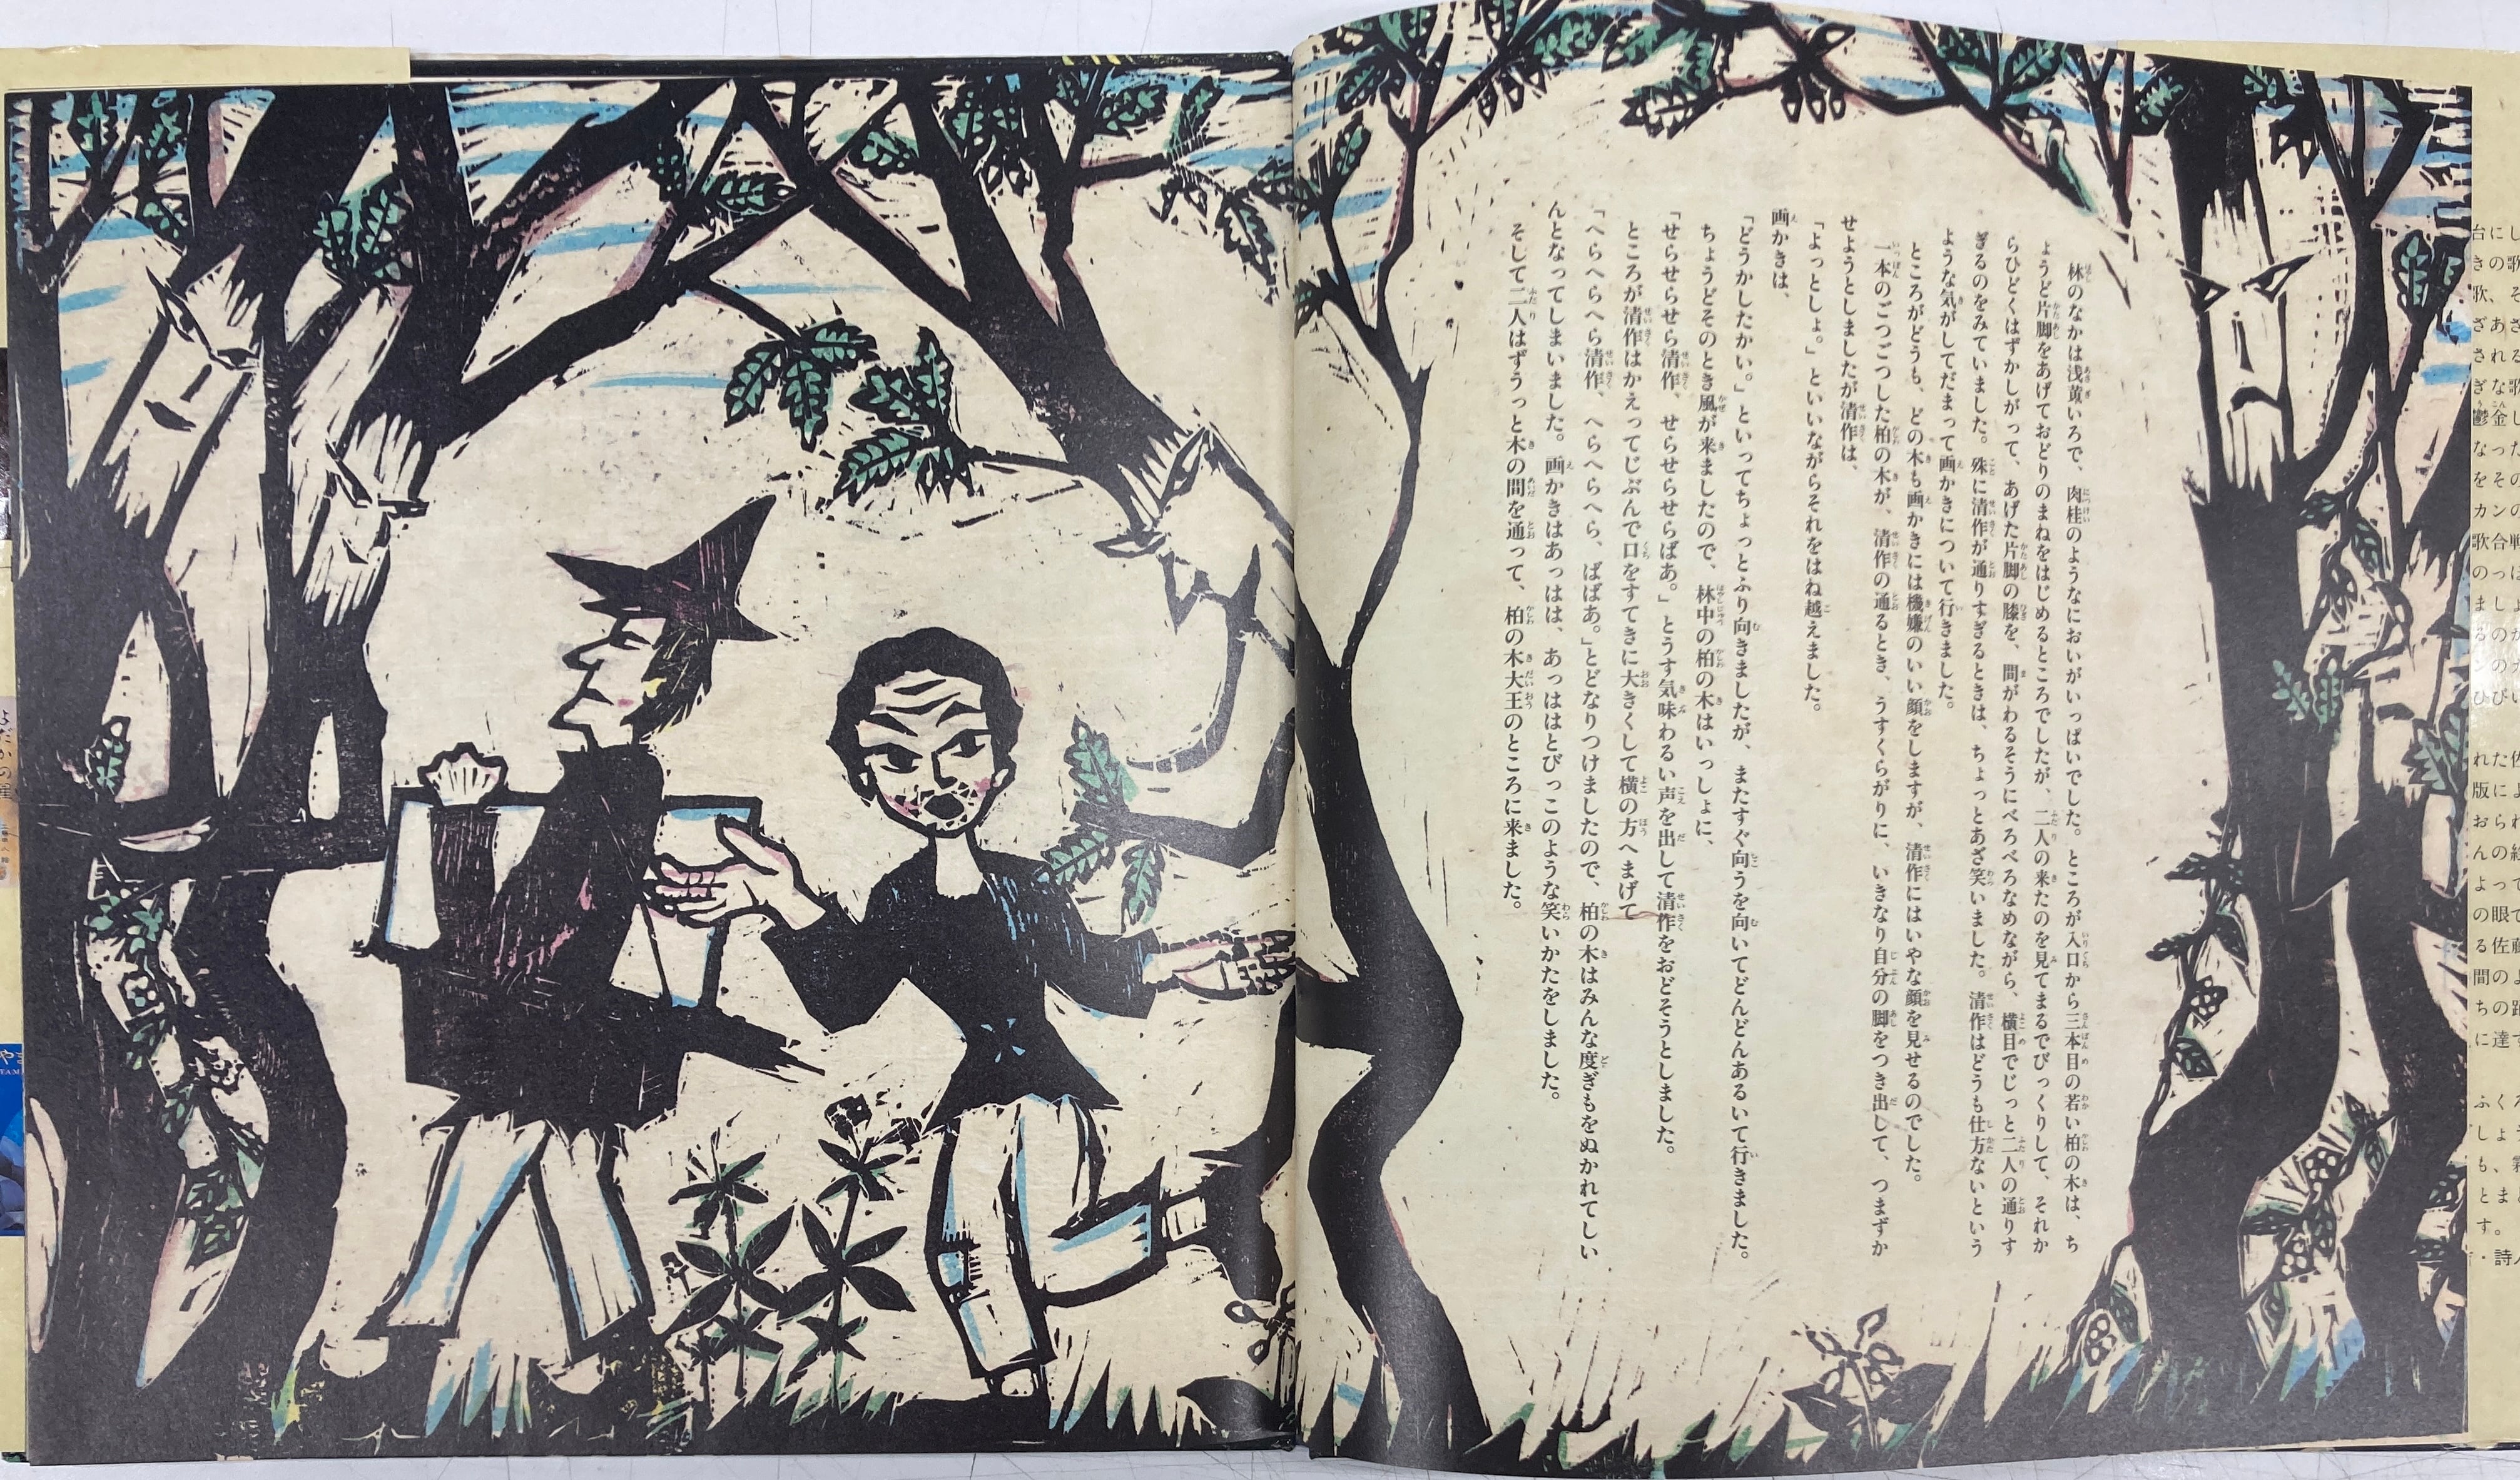 林のなかは浅黄いろで、肉桂のようなにおいがいっぱいでした。ところが入口から三本目の若い柏の木は、ち
ょうど片脚をあげておどりのまねをはじめるところでしたが、二人の来たのを見てまるでびっくりして、それか
らひどくはずかしがって、あげた片脚の膝を、間がわるそうにべろべろなめながら、横目でじっと二人の通りす
ぎるのをみていました。殊に清作が通りすぎるときは、ちょっとあざ笑いました。清作はどうも仕方ないという
ような気がしてだまって画かきについて行きました。
ところがどうも、どの木も画かきには機嫌のいい顔をしますが、清作にはいやな顔を見せるのでした。
一本のごつごつした柏の木が、清作の通るとき、うすくらがりに、いきなり自分の脚をつき出して、つまずか
せようとしましたが清作は、
「よっとしょ。」といいながらそれをはね越えました。
画かきは、
「どうかしたかい。」といってちょっとふり向きましたが、またすぐ向うを向いてどんどんあるいて行きました。
ちょうどそのとき風が来ましたので、林中の柏の木はいっしょに、
「せらせらせら清作、せらせらせらばあ。」とうす気味わるい声を出して清作をおどそうとしました。
ところが清作はかえってじぶんで口をすてきに大きくして横の方へまげて
「へらへらへら清作、へらへらへら、ばばあ。」とどなりつけましたので、柏の木はみんな度ぎもをぬかれてしい
んとなってしまいました。画かきはあっはは、あっははとびっこのような笑いかたをしました。
そして二人はずうっと木の間を通って、柏の木大王のところに来ました。